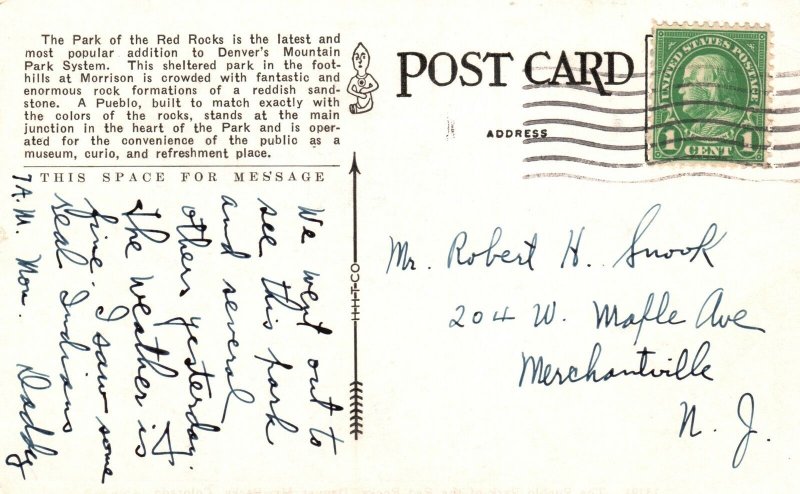 The Park of the Red Rocks is the latest and
most popular addition to Denver's Mountain
Park System. This sheltered park in the foot-
hills at Morrison is crowded with fantastic and
enormous rock formations of a reddish sand-
stone. A Pueblo, built to match exactly with
the colors of the rocks, stands at the main
junction in the heart of the Park and is oper-
ated for the convenience of the public as a
museum, curio, and refreshment place.
THIS SPACE FOR MESSAGE
We went out to
see this park
and several
others yesterday.
The weather is
fine. I saw some
real Indians
Daddy
7 A.M. Mon.
H-H-T-CO
POST CARD
ADDRESS
UNITED STATES POSTAGE
1 CENT 1
Mr. Robert H. Snook
204 W. Maple Ave
Merchantville
N. J.